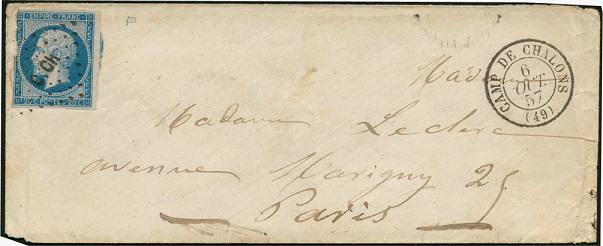 EMPIRE FRANC
C.Ch
20 C. POSTES 20 C.
CAMP DE CHALONS
6
OCT.
57
(49)
Madame
Madame Leclerc
avenue Marigny 25
Paris